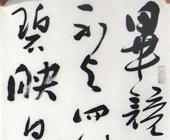 畢竟
不与四
碧映日